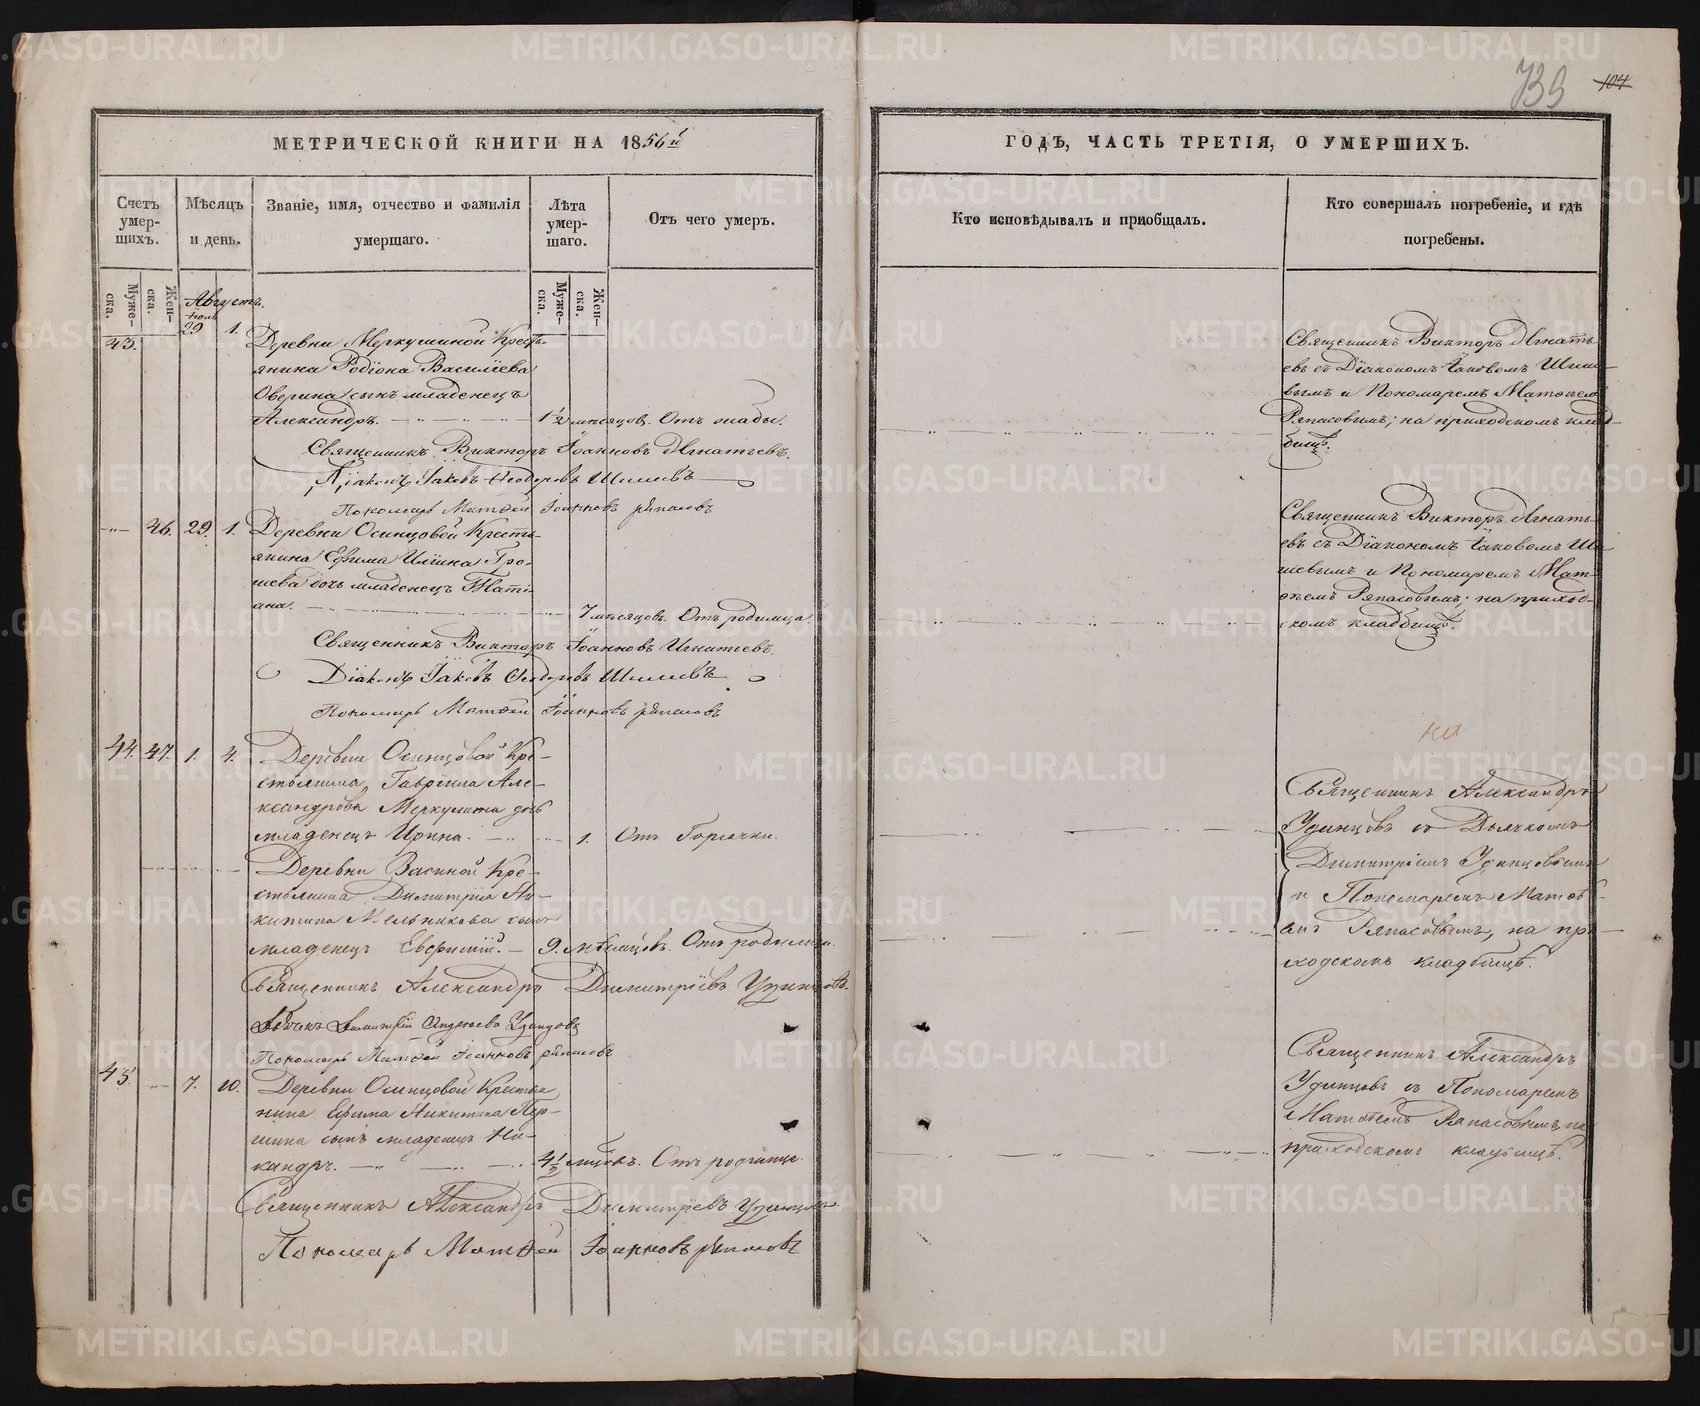 739
104
МЕТРИЧЕСКОЙ КНИГИ НА 1856й
ГОДЪ, ЧАСТЬ ТРЕТІЯ, О УМЕРШИХЪ.
Счетъ умер-шихъ.
Мѣсяцъ и день.
Званіе, имя, отчество и фамилія умершаго.
Лѣта умер-шаго.
Отъ чего умеръ.
Кто исповѣдывалъ и пріобщалъ.
Кто совершалъ погребеніе, и гдѣ погребены.
Муже-ска.
Жен-ска.
Муже-ска.
Жен-ска.
Августъ.
Іюль
29 1.
43.
Деревни Меркушиной Крестъ-
янина Родіона Василіева
Оверина сынъ младенецъ
Александръ. 1 1/2 мѣсяцов. Отъ жабы.
Священникъ Викторъ Іоанновъ Игнатьевъ.
Діаконъ Іаковъ Ѳеодоровъ Шишевъ
Пономарь Матѳей Іоанновъ Ряпасовъ
Священникъ Викторъ Игнать-
евъ съ Діакономъ Іаковомъ Шише-
вымъ и Пономаремъ Матѳеемъ
Ряпасовымъ; на приходскомъ клад-
бищѣ.
46. 29. 1. Деревни Осинцовой Кресть-
янина Ефима Иліина Гро-
шева дочь младенецъ Таті-
ана. 7 мѣсяцовъ. Отъ родимца.
Священникъ Викторъ Іоанновъ Игнатьевъ.
Діаконъ Іаковъ Ѳеодоровъ Шишевъ
Пономарь Матѳей Іоанновъ Ряпасовъ
Священникъ Викторъ Игнать-
евъ съ Діакономъ Іаковомъ Ши-
шевымъ и Пономаремъ Мат-
ѳеемъ Ряпасовымъ; на приход-
скомъ кладбищѣ.
44. 47. 1. 4. Деревни Осинцовой Кре-
стьянина Гавріила Але-
ксандрова Меркушина дочь
младенецъ Ирина. 1. Отъ Горячки.
Деревни Васиной Кре-
стьянина Димитрія Ни-
китина Мельникова сынъ
младенецъ Евфимій. 9. мѣсяцовъ. Отъ родимца.
Священникъ Александръ Димитріевъ Удинцовъ.
Дьячокъ Димитрій Андреевъ Удинцовъ
Пономарь Матѳей Іоанновъ Ряпасовъ
Священникъ Александръ
Удинцовъ съ Дьячкомъ
Димитріемъ Удинцовымъ
и Пономаремъ Матѳѣ-
емъ Ряпасовымъ, на при-
ходскомъ кладбищѣ.
45. 7. 10. Деревни Осинцовой Крестья-
нина Ефима Никитина Пер-
шина сынъ младенецъ Ни-
кандръ. 4 1/2 мѣсяцовъ. Отъ родимца.
Священникъ Александръ Димитріевъ Удинцовъ
Пономарь Матѳей Іоанновъ Ряпасовъ
Священникъ Александръ
Удинцовъ съ Пономаремъ
Матѳеемъ Ряпасовымъ, на
приходскомъ кладбищѣ.
METRIKI.GASO-URAL.RU